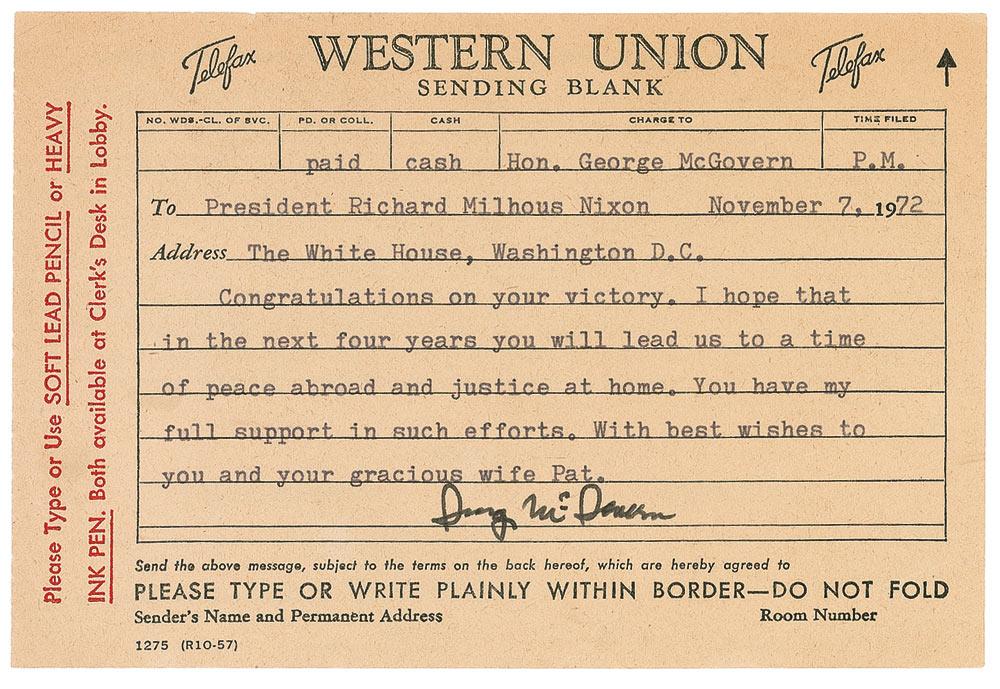 Telefax WESTERN UNION Telefax
SENDING BLANK
NO. WDS.-CL. OF SVC. PD. OR COLL. CASH CHARGE TO TIME FILED
paid cash Hon. George McGovern P.M.
To President Richard Milhous Nixon November 7, 1972
Address The White House, Washington D.C.
Congratulations on your victory. I hope that
in the next four years you will lead us to a time
of peace abroad and justice at home. You have my
full support in such efforts. With best wishes to
you and your gracious wife Pat.
George McGovern
Send the above message, subject to the terms on the back hereof, which are hereby agreed to
PLEASE TYPE OR WRITE PLAINLY WITHIN BORDER—DO NOT FOLD
Sender's Name and Permanent Address Room Number
1275 (R10-57)
Please Type or Use SOFT LEAD PENCIL or HEAVY
INK PEN. Both available at Clerk's Desk in Lobby.